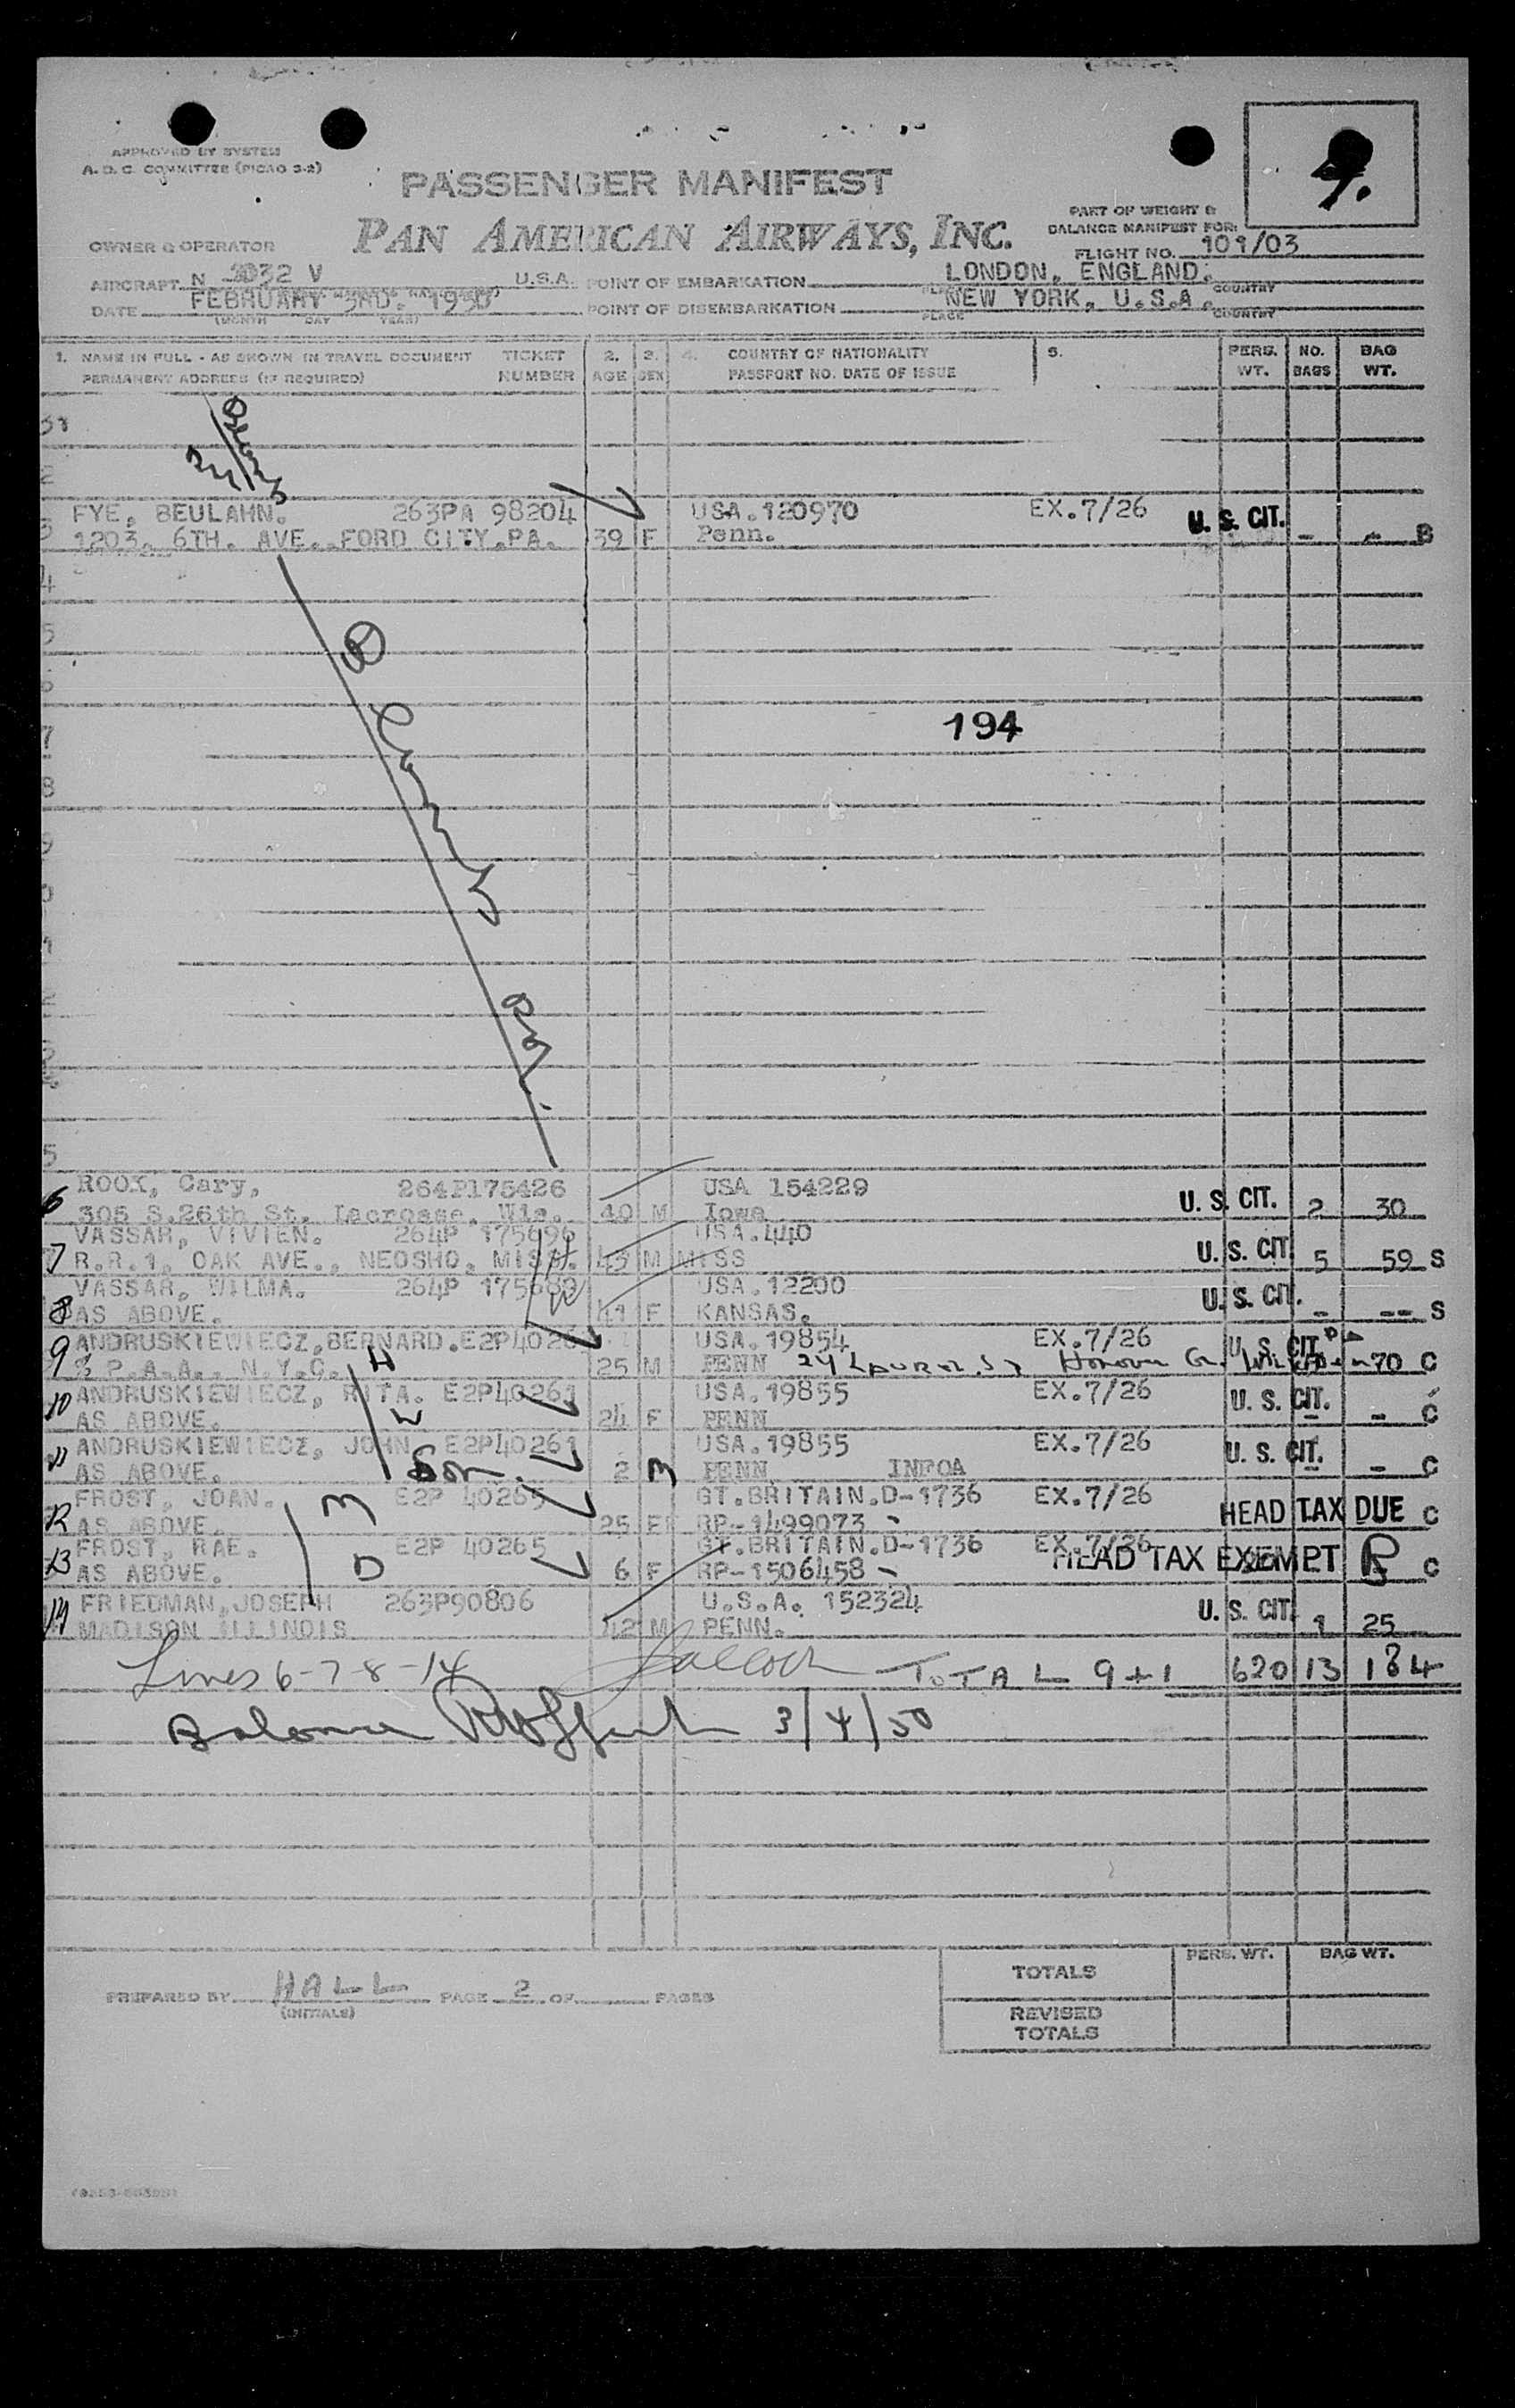 APPROVED BY SYSTEM
A. D. C. COMMITTEE (PICAO 3-2)
9.
PASSENGER MANIFEST
PAN AMERICAN AIRWAYS, INC.
PART OF WEIGHT &
BALANCE MANIFEST FOR:
OWNER & OPERATOR
FLIGHT NO. 101/03
AIRCRAFT N 1032 V U.S.A. POINT OF EMBARKATION LONDON, ENGLAND.
PLACE COUNTRY
DATE FEBRUARY 3RD. 1950 POINT OF DISEMBARKATION NEW YORK, U.S.A.
(MONTH DAY YEAR) PLACE COUNTRY
1. NAME IN FULL - AS SHOWN IN TRAVEL DOCUMENT TICKET 2. 3. 4. COUNTRY OF NATIONALITY 5. PERS. NO. BAG
PERMANENT ADDRESS (IF REQUIRED) NUMBER AGE SEX PASSPORT NO. DATE OF ISSUE WT. BAGS WT.
31
2
FYE, BEULAHN. 263PA 98204 USA.120970 EX.7/26 U. S. CIT.
3 1203, 6TH. AVE. FORD CITY.PA. 39 F Penn. - - B
4
5
6
7 194
8
9
0
1
2
5
ROOX, Cary, 264P175426 USA 154229
6 305 S.26th St. Lacrosse, Wis. 40 M Iowa U. S. CIT. 2 30
VASSAR, VIVIEN. 264P 175696 USA.440
7 R.R.1, OAK AVE., NEOSHO, MISS. 43 M MISS U. S. CIT. 5 59 S
VASSAR, WILMA. 264P USA.12200
8 AS ABOVE. 41 F KANSAS. U. S. CIT. - -- S
9 ANDRUSKIEWIECZ,BERNARD.E2P4026 USA.19854 EX.7/26 U. S. CIT.
% P.A.A., N.Y.C. H 25 M PENN 24 Laurel St Hanover 70 C
10 ANDRUSKIEWIECZ, RITA. E2P40261 USA.19855 EX.7/26 U. S. CIT.
AS ABOVE. W 24 F PENN - - C
11 ANDRUSKIEWIECZ, JOHN E2P40261 USA.19855 EX.7/26 U. S. CIT.
AS ABOVE. Son. 2 M PENN INFOA - - C
FROST, JOAN. M E2P 40265 GT.BRITAIN.D-1736 EX.7/26
12 AS ABOVE. 25 F RP-1499073 - HEAD TAX DUE C
FROST, RAE. E2P 40265 GT.BRITAIN.D-1736 EX.7/26
13 AS ABOVE. D 6 F RP-1506458 - HEAD TAX EXEMPT C
FRIEDMAN,JOSEPH 263P90806 U.S.A. 152324
14 MADISON ILLINOIS 42 M PENN. U. S. CIT. 1 25
Lines 6-7-8-14 TOTAL 9+1 620 13 184
Balance 3/4/50
TOTALS PERS. WT. BAG WT.
PREPARED BY HALL PAGE 2 OF PAGES
(INITIALS)
REVISED
TOTALS